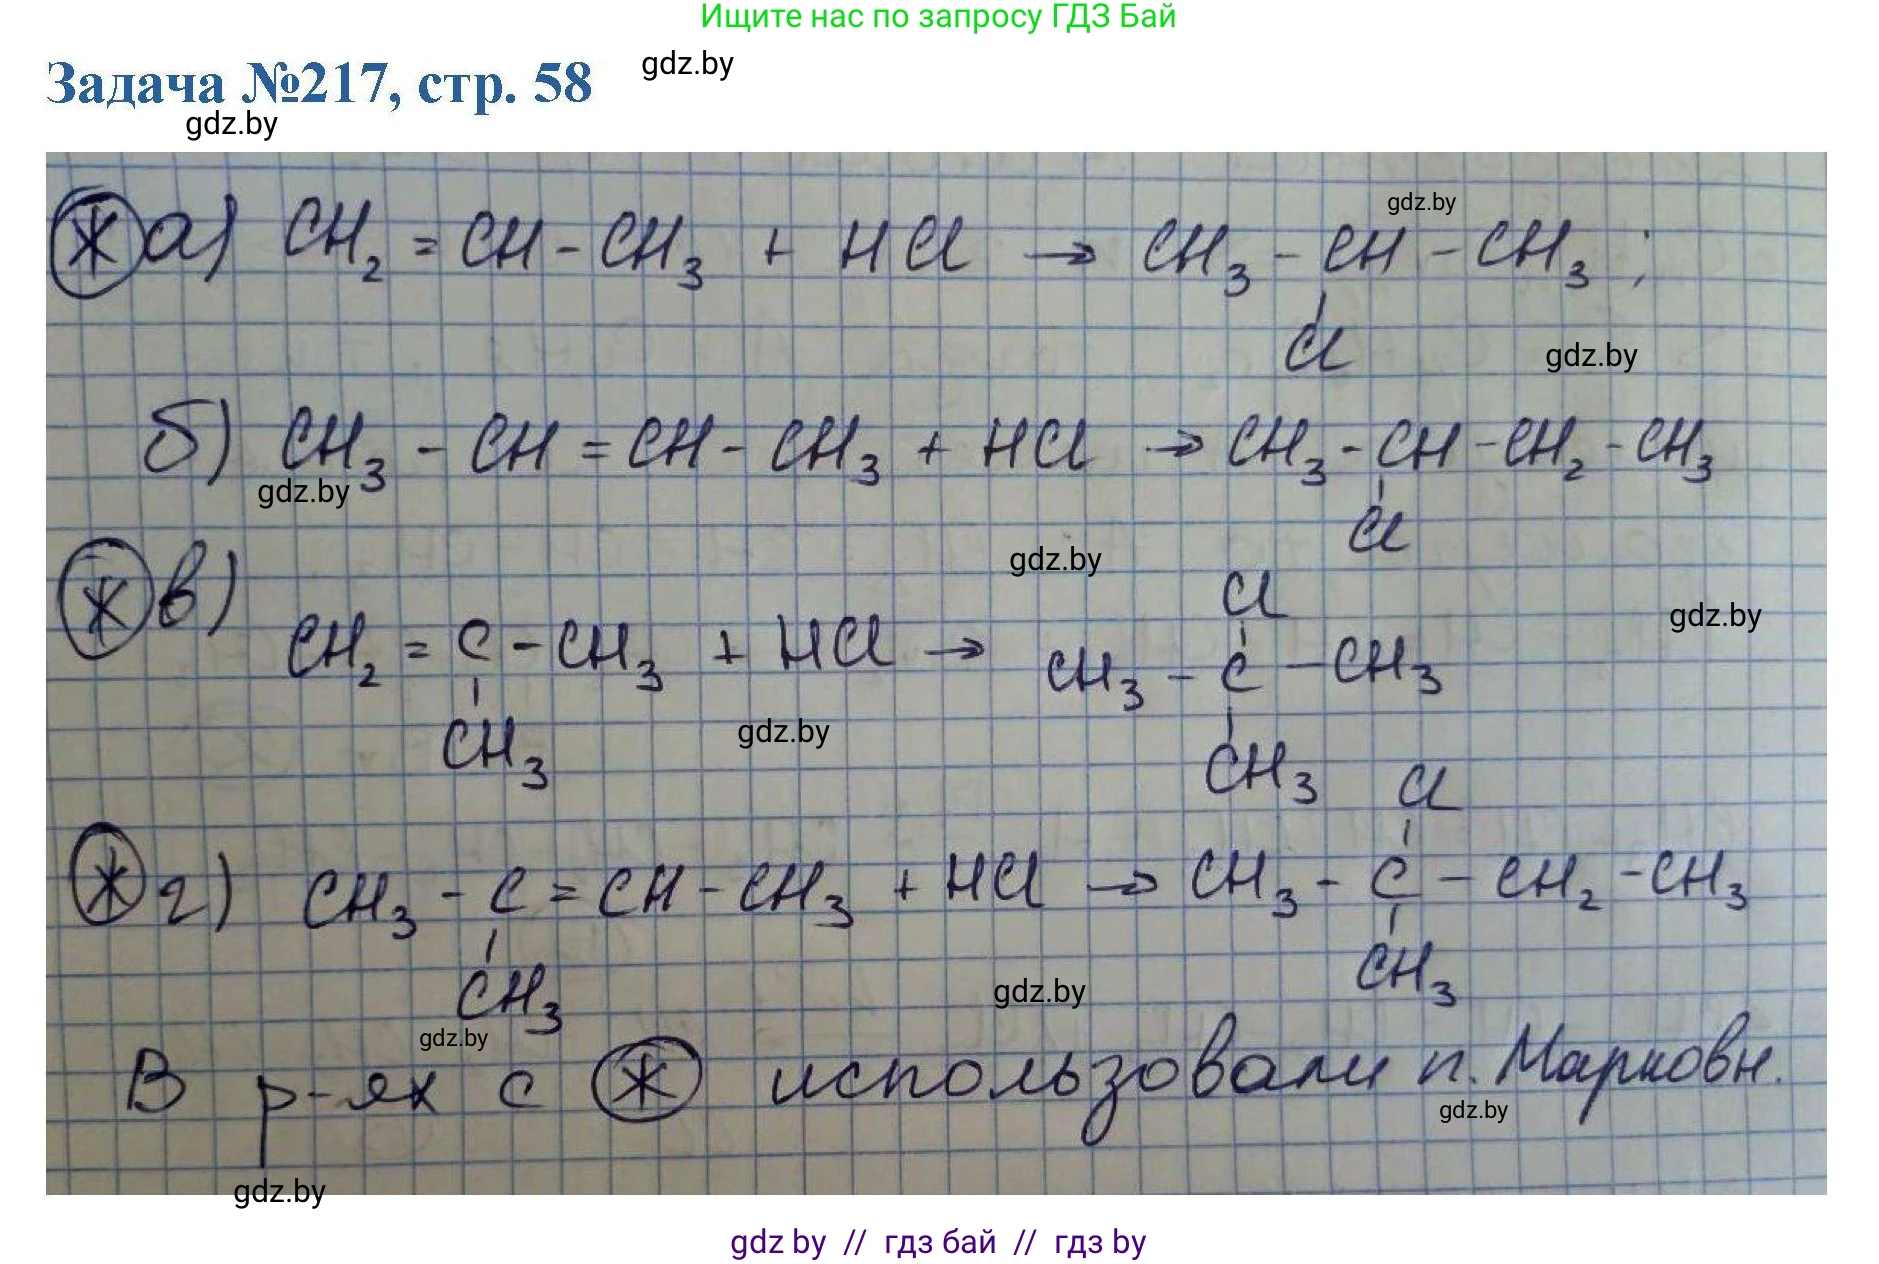 Ищите нас по запросу ГДЗ Бай
Задача №217, стр. 58
gdz.by
gdz.by
Ж а) CH₂ = CH - CH₃ + HCl → CH₃ - CH - CH₃ ;
gdz.by
Cl
gdz.by
б) CH₃ - CH = CH - CH₃ + HCl → CH₃ - CH - CH₂ - CH₃
gdz.by
Cl
gdz.by
Ж в)
Cl
gdz.by
CH₂ = C - CH₃ + HCl → CH₃ - C - CH₃
CH₃
gdz.by
CH₃
Cl
Ж г) CH₃ - C = CH - CH₃ + HCl → CH₃ - C - CH₂ - CH₃
CH₃
gdz.by
CH₃
gdz.by
В р-ях с Ж использовали п. Марковн.
gdz.by
gdz.by
gdz by // гдз бай // гдз by